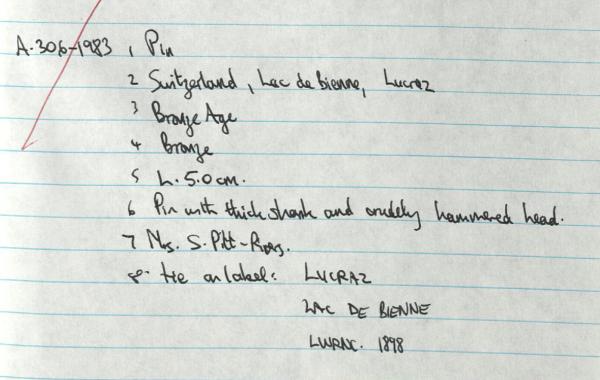 A.306-1983 1 Pin
2 Switzerland, Lac de Bienne, Lucraz
3 Bronze Age
4 Bronze
5 L. 5.0 cm.
6 Pin with thick shank and crudely hammered head.
7 Mrs. S. Pitt-Rivers.
8. tie on label: LUCRAZ
LAC DE BIENNE
1898